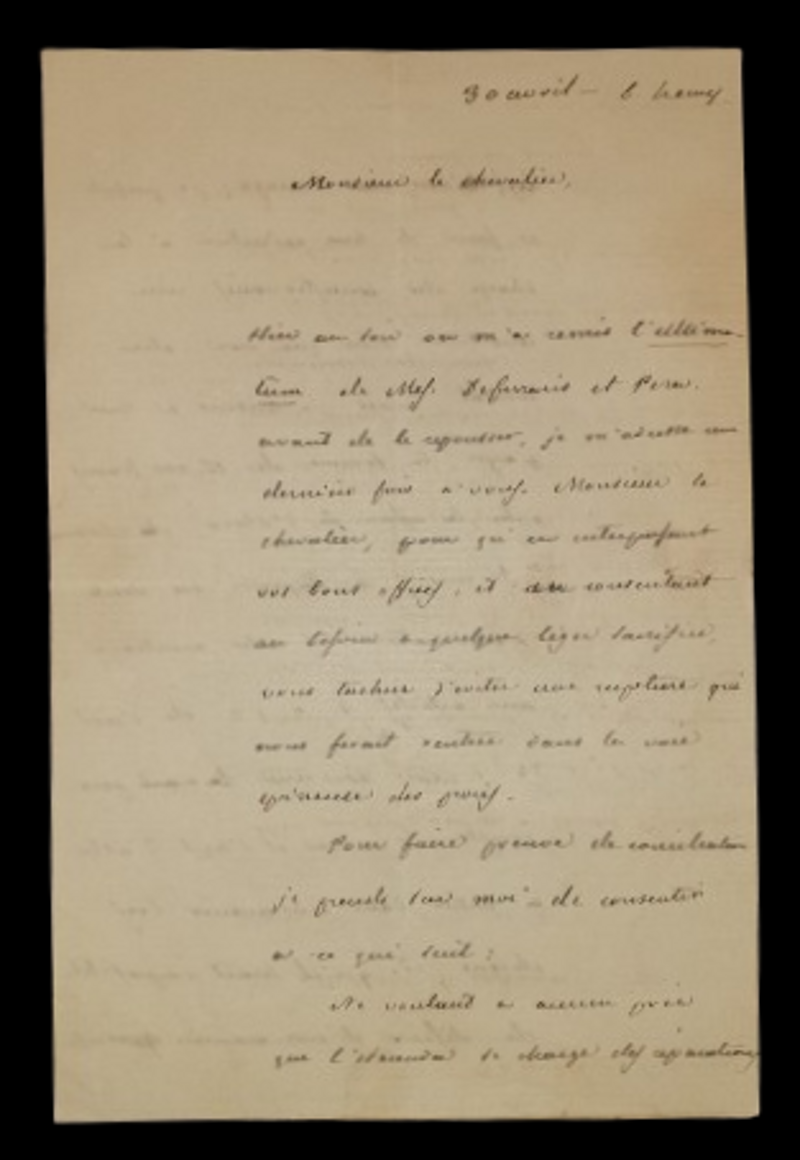 30 avril –
Monsieur le chevalier,
Hier au soir on m'a remis l'ultima-
tum de Mes. Deferraris et Pera.
avant de le repousser, je m'adresse une
dernière fois a vous, Monsieur le
chevalier, pour qu' en interposant
vos bons offices, et en consentant
au besoin a quelque léger sacrifice,
vous tachiez d'eviter une rupture qui
nous ferait rentrer dans la voie
epineuse des procès.
Pour faire preuve de conciliation
je prends sur moi de consentir
a ce qui suit :
Ne voulant a aucun prix
que l' se charge des réparations